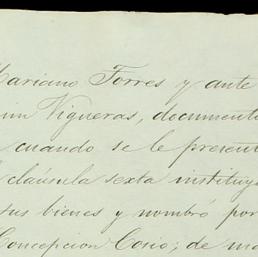 Mariano Torres y ante
Vigueras, documento
cuando se le present
cláusula sexta instituy
sus bienes y nombró por
Concepcion Cosio; de ma